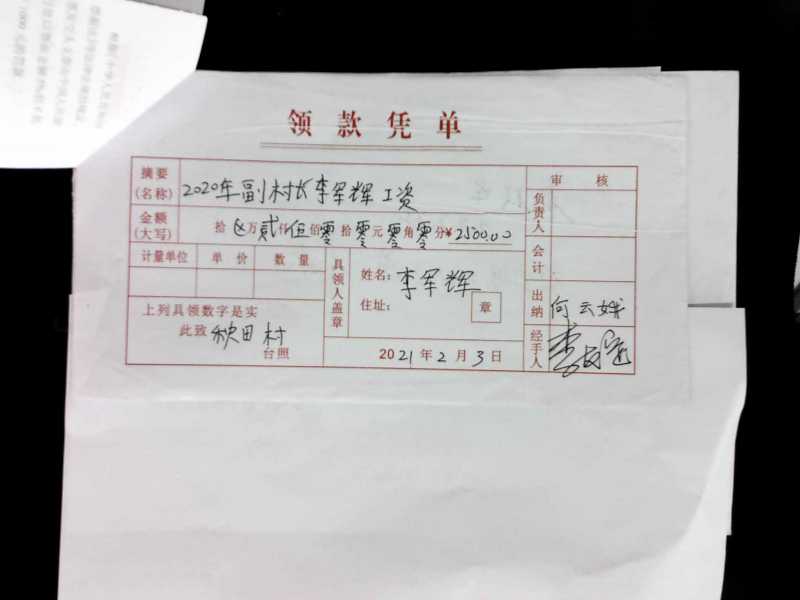 领款凭单
摘要(名称) 2020年副村长李军辉工资
审核
金额(大写) 拾 万贰仟伍佰零拾零元零角零分¥2500.00
负责人
计量单位 单价 数量
会计
具领人盖章
姓名:李军辉
住址:
章
出纳 何云娥
上列具领数字是实
此致 秋田村
台照
2021年2月3日
经手人